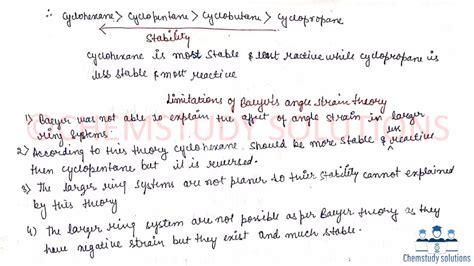 ∴ Cyclohexane > Cyclopentane > Cyclobutane > Cyclopropane
Stability
Cyclohexane is most stable & least reactive while cyclopropane is
less stable & most reactive
Limitations of Baeyer's angle strain theory
1) Baeyer was not able to explain the effect of angle strain in larger
ring systems
2) According to this theory cyclohexane should be more stable & less reactive
then cyclopentane but it is reversed.
3) The larger ring systems are not planer so thier stability cannot explained
by this theory
4) The larger ring system are not possible as per Baeyer theory as they
have negative strain but they exist and much stable.
©CHEMSTUDY SOLUTIONS
Chemstudy solutions